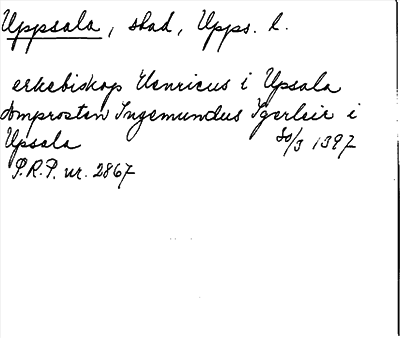 Uppsala, stad, Upps. l.
erkebiskop Henricus i Upsala
domprosten Ingemundus Ygerleir i
Upsala 30/3 1397
P.R.P. nr. 2867